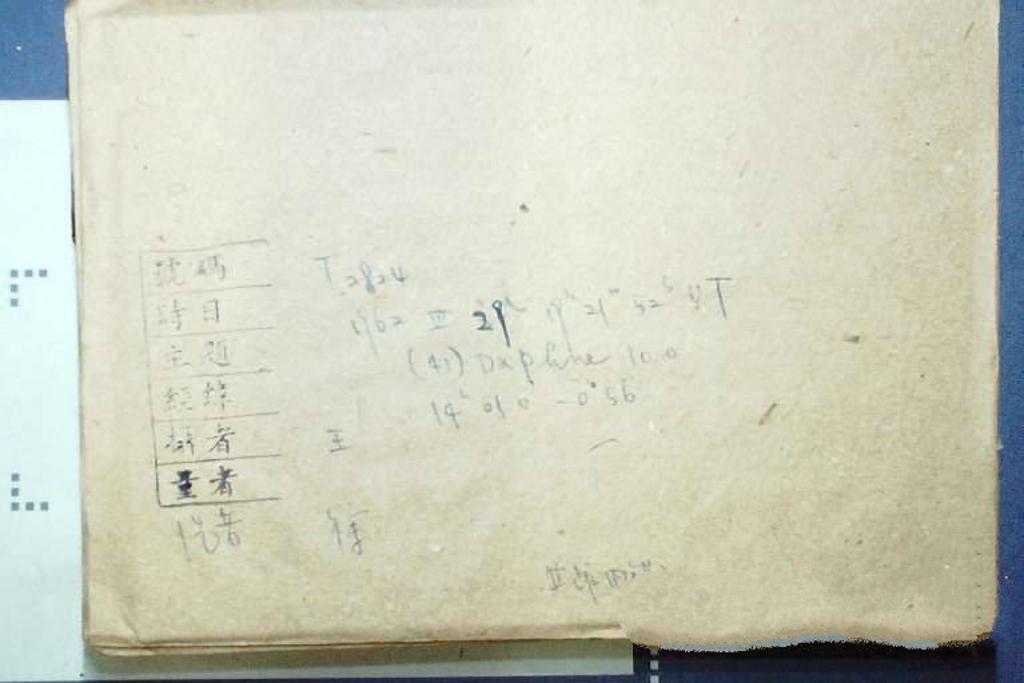 號碼 T 2824
時日 1962 III 29d 19h 21m 52s UT
主題 (41) Daphne 10.0
經緯 14h 01.0 -0°56
攝者 王
量者
洗者 徐